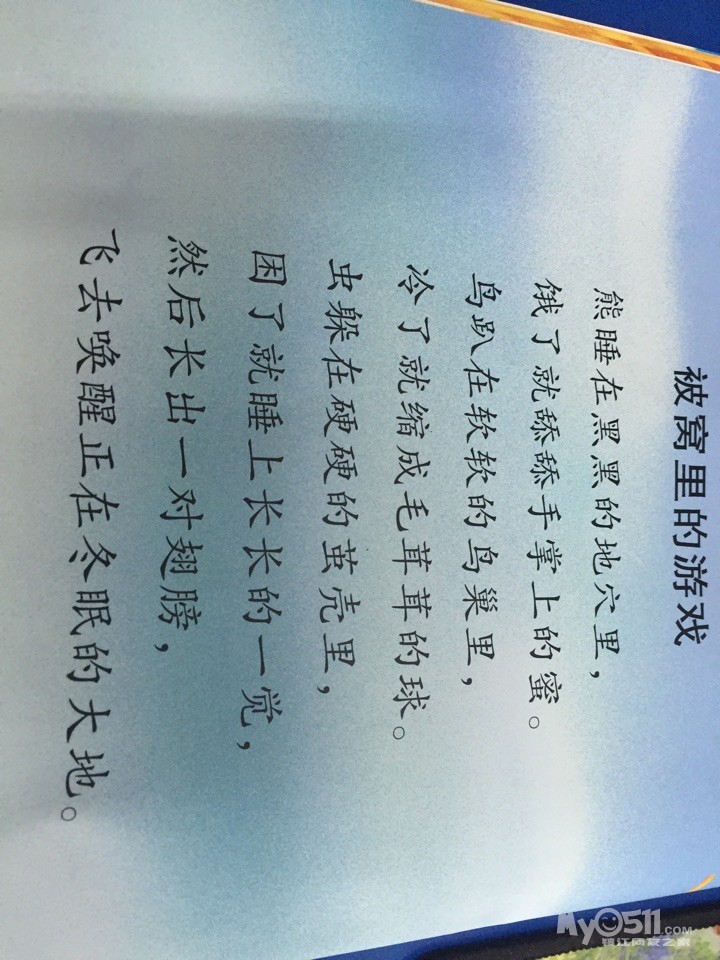 被窝里的游戏
熊睡在黑黑的地穴里，
饿了就舔舔手掌上的蜜。
鸟趴在软软的鸟巢里，
冷了就缩成毛茸茸的球。
虫躲在硬硬的茧壳里，
困了就睡上长长的一觉，
然后长出一对翅膀，
飞去唤醒正在冬眠的大地。
My0511.COM